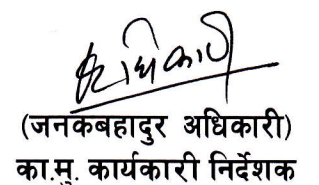 (जनकबहादुर अधिकारी)
का.मु. कार्यकारी निर्देशक